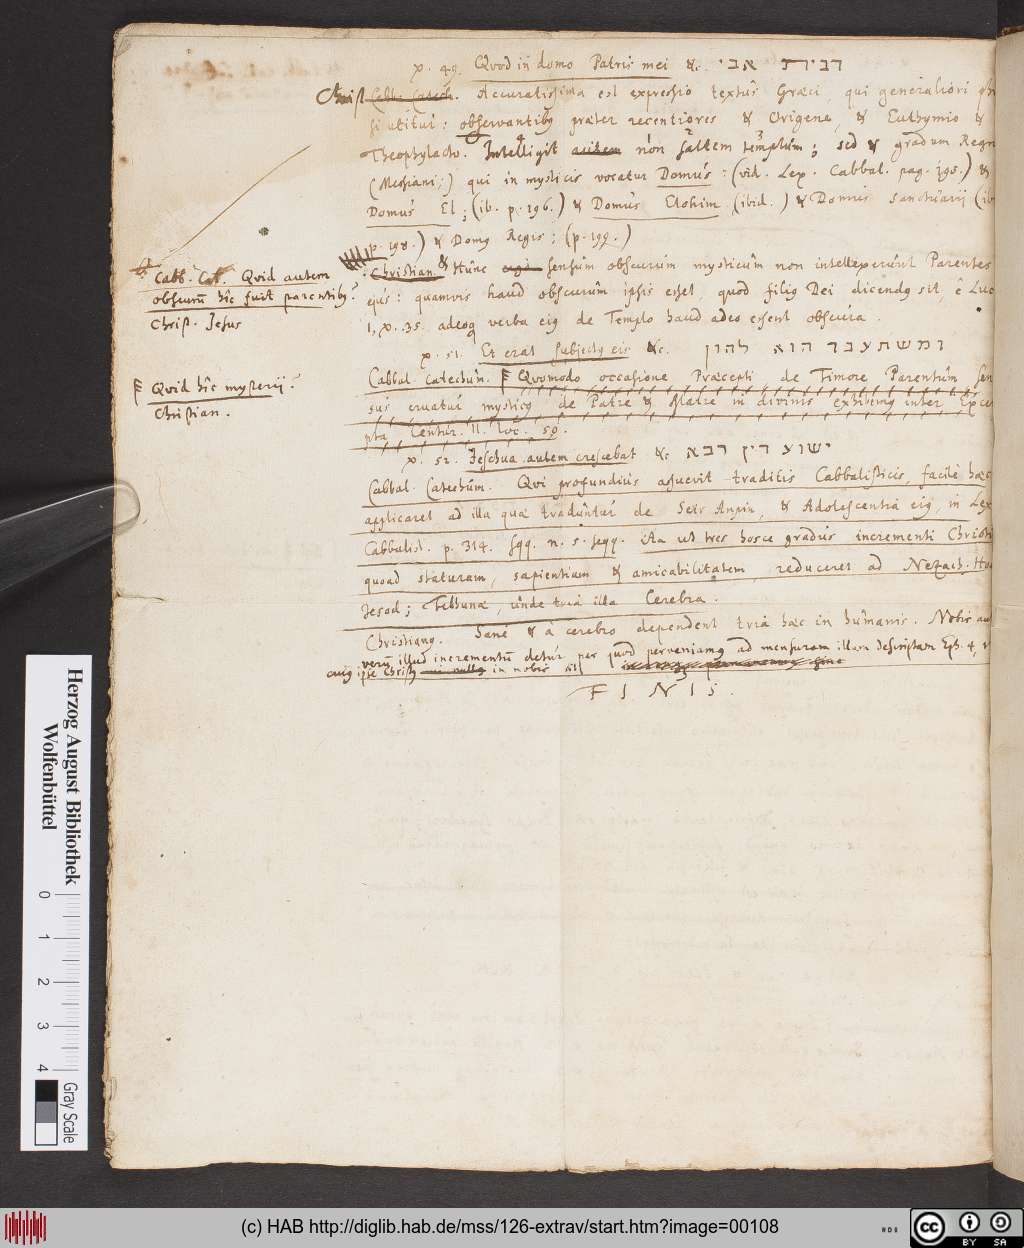 v. 49. Quod in domo Patris mei &c. דבירת אבי
Christ. Cabb. Catech. Accuratissima est expressio textus Graeci, qui generaliori
utitur: observantibus praeter recentiores & Origene, & Euthymio &
Theophylacto. Intelligit autem non saltem templum; sed & gradum Regni
(Messiani;) qui in mysticis vocatur Domus: (vid. Lex. Cabbal. pag. 195.) &
Domus El; (ib. p. 196.) & Domus Elohim (ibid.) & Domus Sanctuarij (ib
p. 198.) & Domus Regis; (p. 199.)
Cabb. Cat. Quid autem
obscurum hîc fuit parentibus?
Christ. Jesus
Christian. & Hunc ergo sensum obscurum mysticum non intellexerunt Parentes
ejus: quamvis haud obscurum ipsis esset, quod filius Dei dicendus sit, è Luc
1, v. 35. adeoque verba ejus de Templo haud adeo essent obscura.
v. 51. Et erat subjectus eis &c. ומשתעבד הוא להון
Quid hîc mysterij?
Christian.
Cabbal. Catechum. Quomodo occasione Praecepti de Timore Parentum sen
sus eruatur mysticus de Patre & Matre in divinis exhibemus inter Excer
pta Centur. II. loc. 50.
v. 52. Jeschua autem crescebat &c. ישוע דין רבא
Cabbal. Catechum. Qui profundius assuevit traditis Cabbalisticis, facilè haec
applicaret ad illa quae traduntur de Seir Anpin, & Adolescentia ejus, in Lex.
Cabbalist. p. 314. sqq. n. 5. seqq. ita ut tres hosce gradus incrementi Christi
quoad staturam, sapientiam & amicabilitatem, reduceret ad Nezach. Hod
Jesod; Tebhunae, unde tria illa Cerebra.
Christianus. Sanè & à cerebro dependent tria haec in humanis. Nobis
verum illud incrementum detur per quod perveniamus ad mensuram illam descriptam Eph. 4, v
ipse Christus in nobis sit
FINIS.
Herzog August Bibliothek
Wolfenbüttel
0 1 2 3 4
Gray Scale
(c) HAB http://diglib.hab.de/mss/126-extrav/start.htm?image=00108
cc BY SA